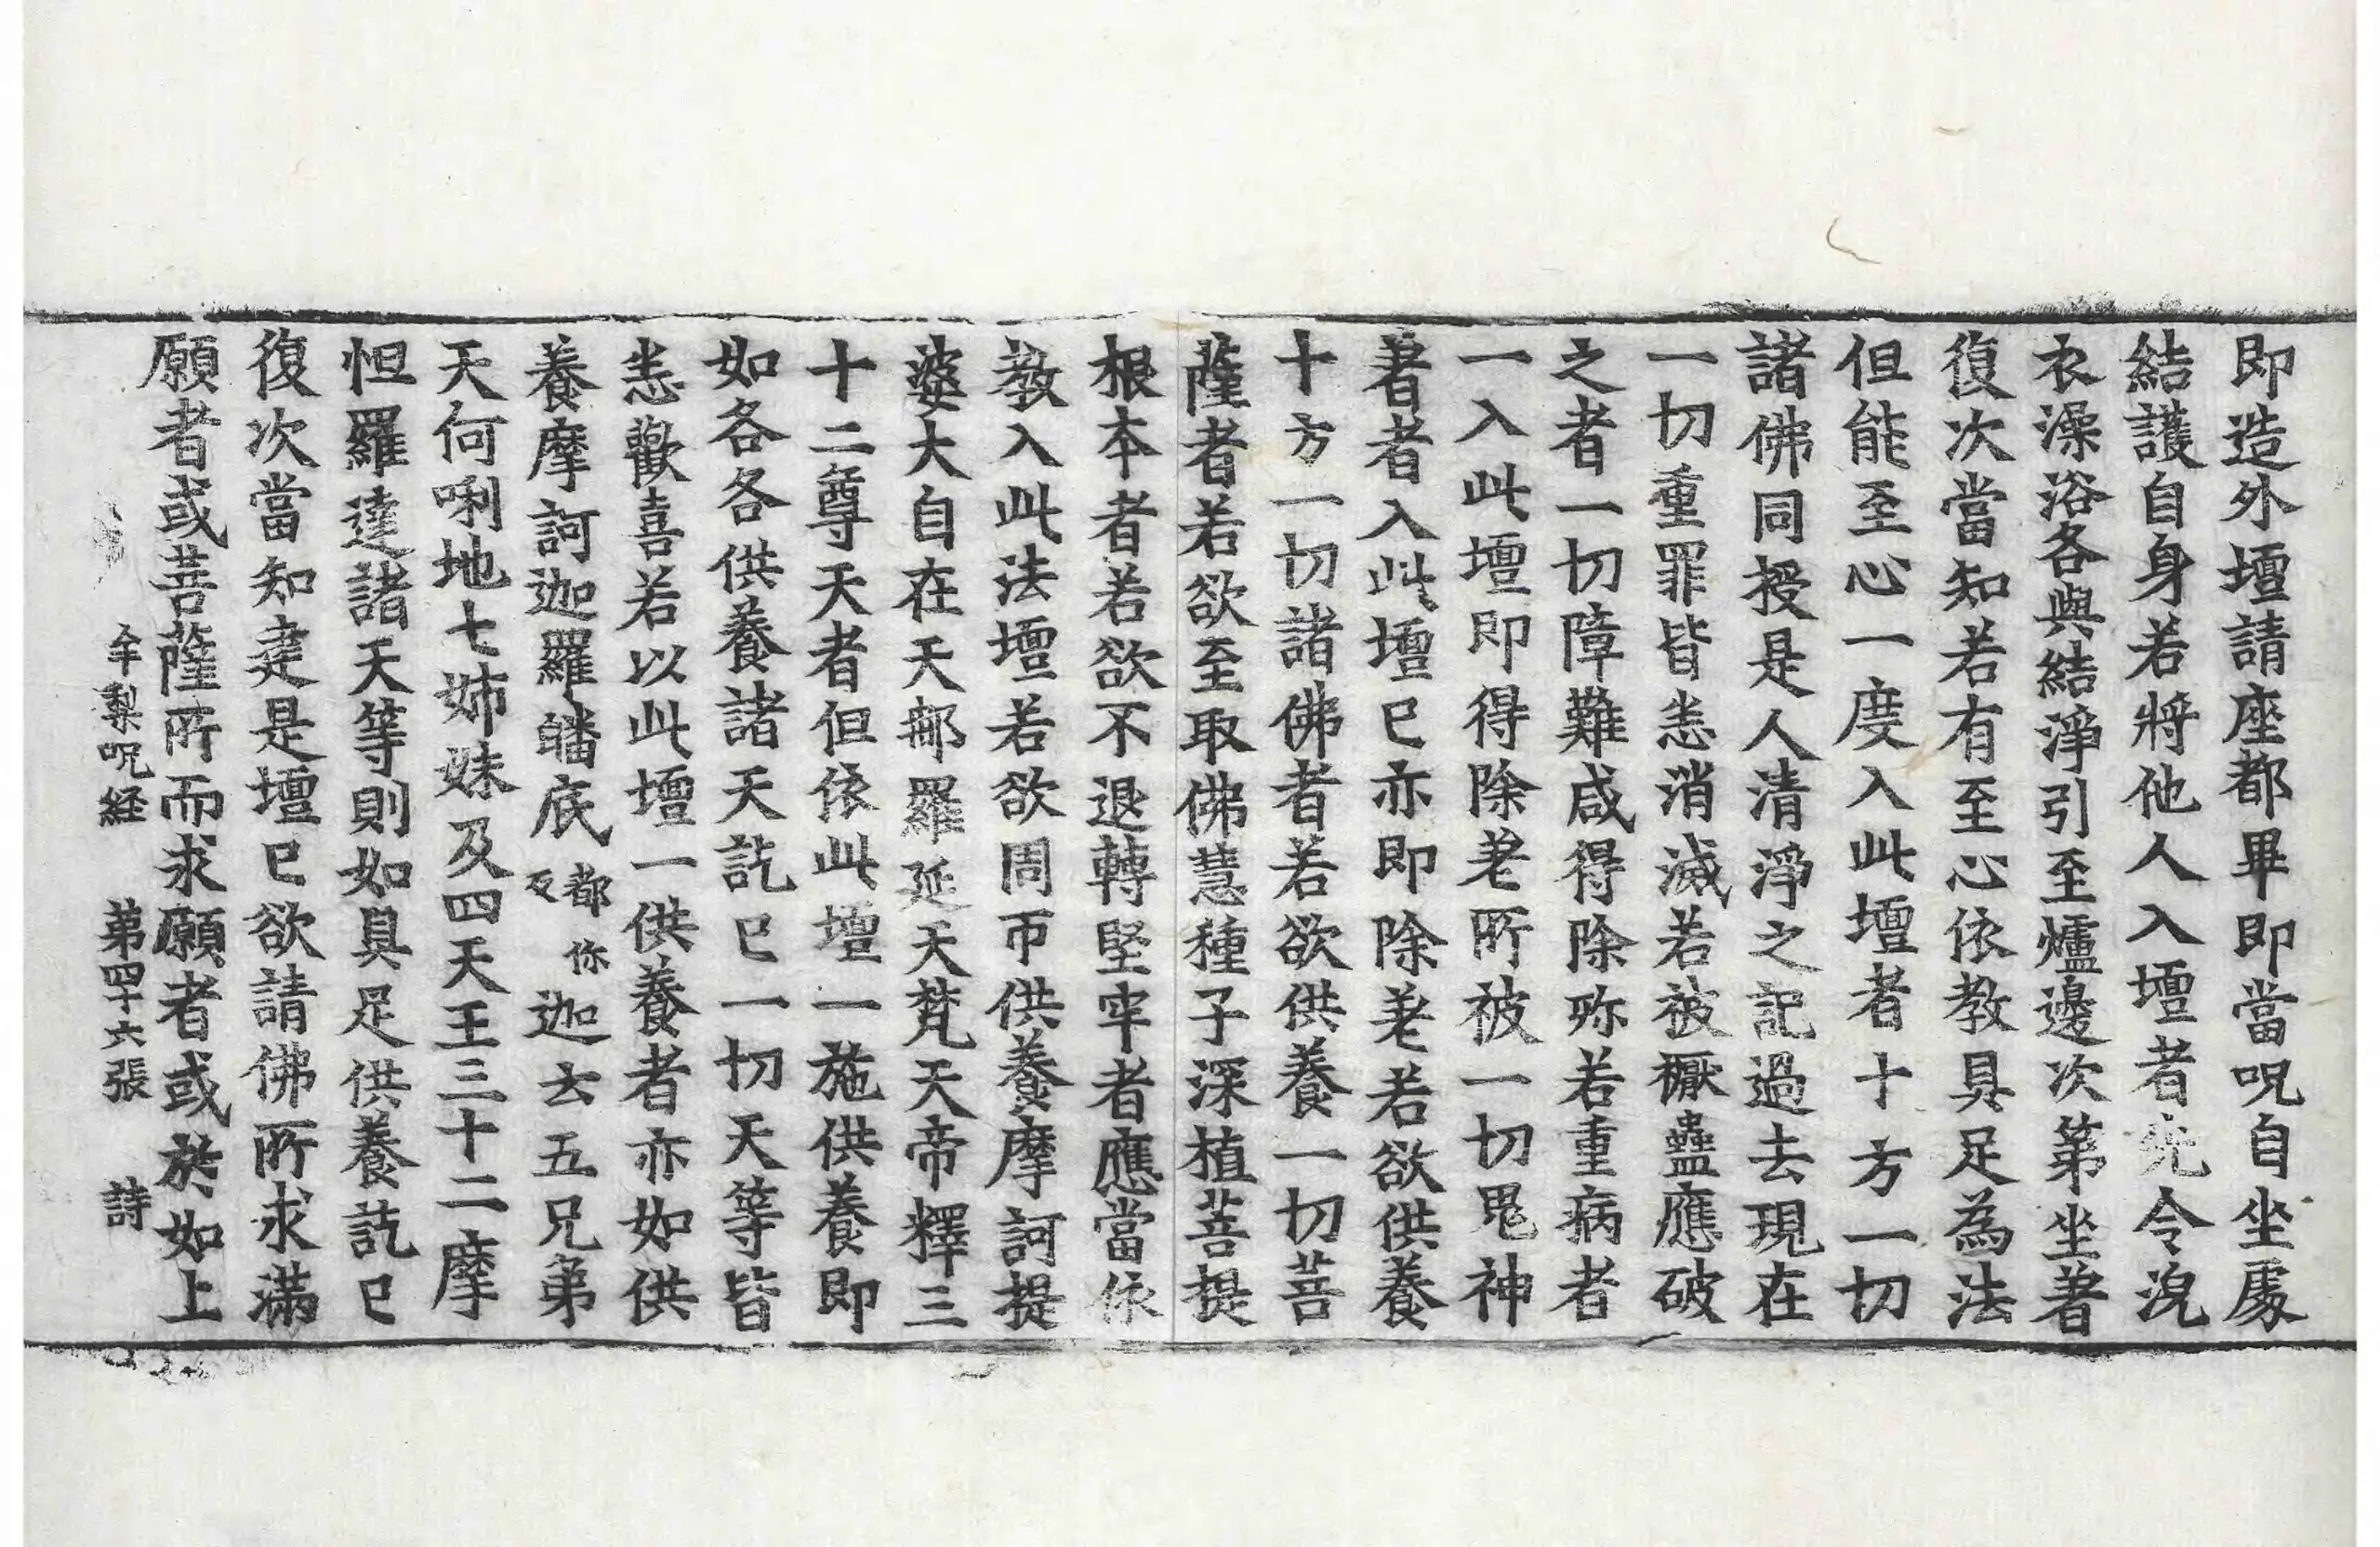 即造外壇請座都畢即當呪自坐處
結護自身若將他人入壇者先令洗
衣澡浴各與結淨引至爐邊次第坐著
復次當知若有至心依教具足為法
但能至心一度入此壇者十方一切
諸佛同授是人清淨之記過去現在
一切重罪皆悉消滅若被橛蠱應破
之者一切障難咸得除殄若重病者
一入此壇即得除差所被一切鬼神
著者入此壇已亦即除差若欲供養
十方一切諸佛者若欲供養一切菩
薩者若欲至取佛慧種子深植菩提
根本者若欲不退轉堅牢者應當依
教入此法壇若欲周帀供養摩訶提
婆大自在天那羅延天梵天帝釋三
十二尊天者但依此壇一施供養即
如各各供養諸天訖已一切天等皆
悉歡喜若以此壇一供養者亦如供
養摩訶迦羅皤底都你反迦去五兄弟
天何唎地七姊妹及四天王三十二摩
怛羅達諸天等則如具足供養訖已
復次當知建是壇已欲請佛所求滿
願者或菩薩所而求願者或於如上
牟梨呪経　第四十六張　詩